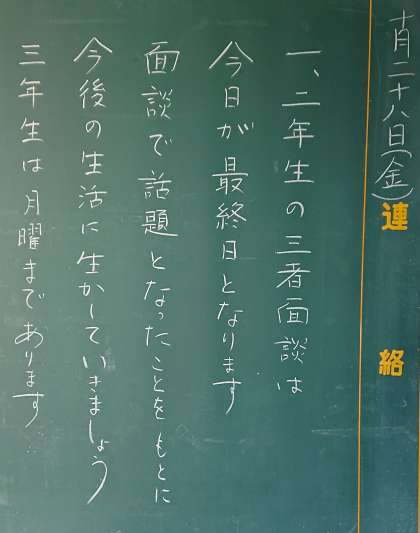 十月二十八日(金)
連絡
一、二年生の三者面談は
今日が最終日となります
面談で話題となったことをもとに
今後の生活に生かしていきましょう
三年生は月曜まであります